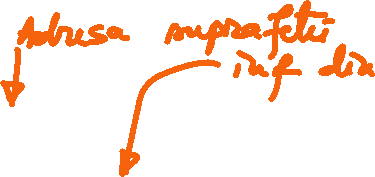 Adusa suprafetii
inf din